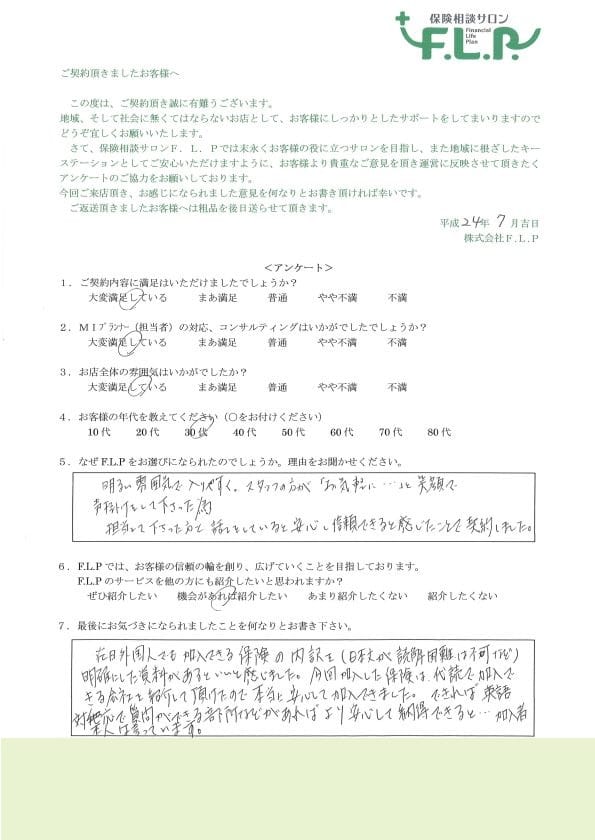 保険相談サロン
F.L.P.
Financial
Life
Plan
ご契約頂きましたお客様へ
この度は、ご契約頂き誠に有難うございます。
地域、そして社会に無くてはならないお店として、お客様にしっかりとしたサポートをしてまいりますので
どうぞ宜しくお願いいたします。
さて、保険相談サロンF．L．Pでは末永くお客様の役に立つサロンを目指し、また地域に根ざしたキー
ステーションとしてご安心いただけますように、お客様より貴重なご意見を頂き運営に反映させて頂きたく
アンケートのご協力をお願いしております。
今回ご来店頂き、お感じになられました意見を何なりとお書き頂ければ幸いです。
ご返送頂きましたお客様へは粗品を後日送らせて頂きます。
平成24年7月吉日
株式会社F.L.P
＜アンケート＞
1．ご契約内容に満足はいただけましたでしょうか？
大変満足している　まあ満足　普通　やや不満　不満
2．MIプランナー（担当者）の対応、コンサルティングはいかがでしたでしょうか？
大変満足している　まあ満足　普通　やや不満　不満
3．お店全体の雰囲気はいかがでしたか？
大変満足している　まあ満足　普通　やや不満　不満
4．お客様の年代を教えてください（○をお付けください）
10代　20代　30代　40代　50代　60代　70代　80代
5．なぜF.L.Pをお選びになられたのでしょうか。理由をお聞かせください。
明るい雰囲気で入りやすく、スタッフの方が「お気軽に…」と笑顔で
声掛けをして下さった為
担当して下さった方と話をしていると安心し信頼できると感じたことで契約しました。
6．F.L.Pでは、お客様の信頼の輪を創り、広げていくことを目指しております。
F.L.Pのサービスを他の方にも紹介したいと思われますか？
ぜひ紹介したい　機会があれば紹介したい　あまり紹介したくない　紹介したくない
7．最後にお気づきになられましたことを何なりとお書き下さい。
在日外国人でも加入できる保険の内訳を（日本文が読解困難は不可など）
明確にした資料があるといいと感じました。今回加入した保険は、代読で加入で
きる会社を紹介して頂けたので本当に安心して加入できました。できれば英語
対応で質問ができる部所などがあればより安心して納得できると…加入者
本人は言っています。